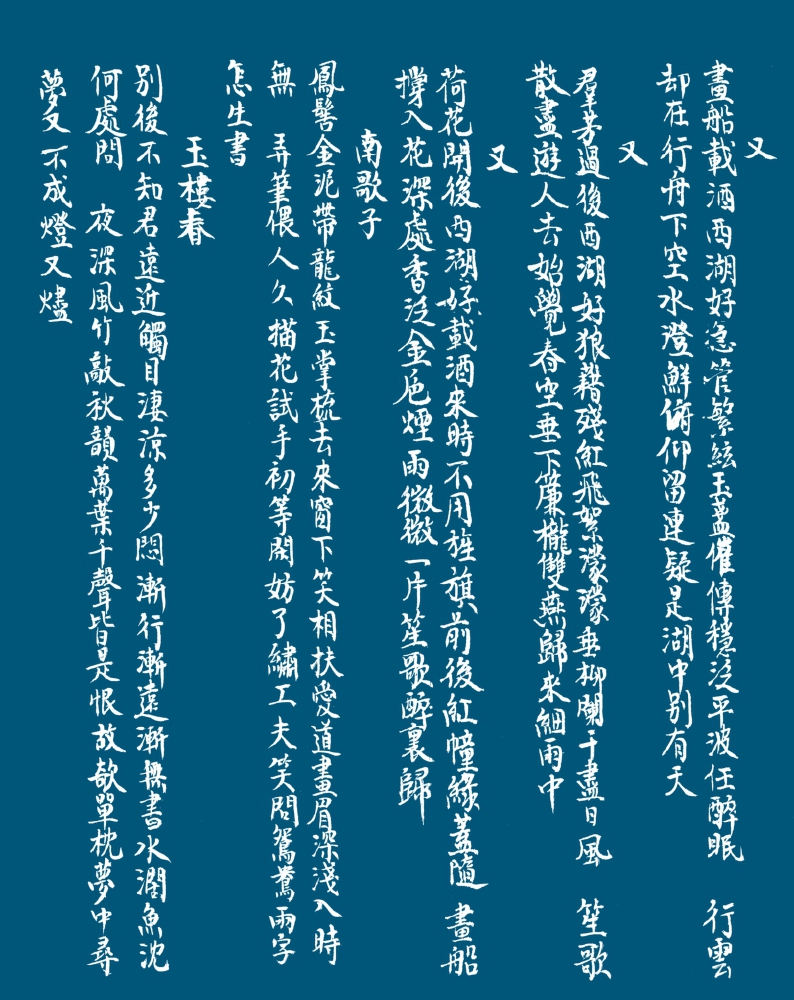 又
畫船載酒西湖好急管繁絃玉盞催傳穩泛平波任醉眠　行雲
却在行舟下空水澄鮮俯仰留連疑是湖中别有天
又
羣芳過後西湖好狼藉殘紅飛絮濛濛垂柳闌干盡日風　笙歌
散盡遊人去始覺春空垂下簾櫳雙燕歸來細雨中
又
荷花開後西湖好載酒來時不用旌旗前後紅幢綠蓋隨　畫船
撐入花深處香泛金巵煙雨微微一片笙歌醉裏歸
南歌子
鳳髻金泥帶龍紋玉掌梳去來窗下笑相扶愛道畫眉深淺入時
無　弄筆偎人久描花試手初等閑妨了繡工夫笑問鴛鴦兩字
怎生書
玉樓春
别後不知君遠近觸目淒涼多少悶漸行漸遠漸無書水濶魚沈
何處問　夜深風竹敲秋韻萬葉千聲皆是恨故欹單枕夢中尋
夢又不成燈又燼